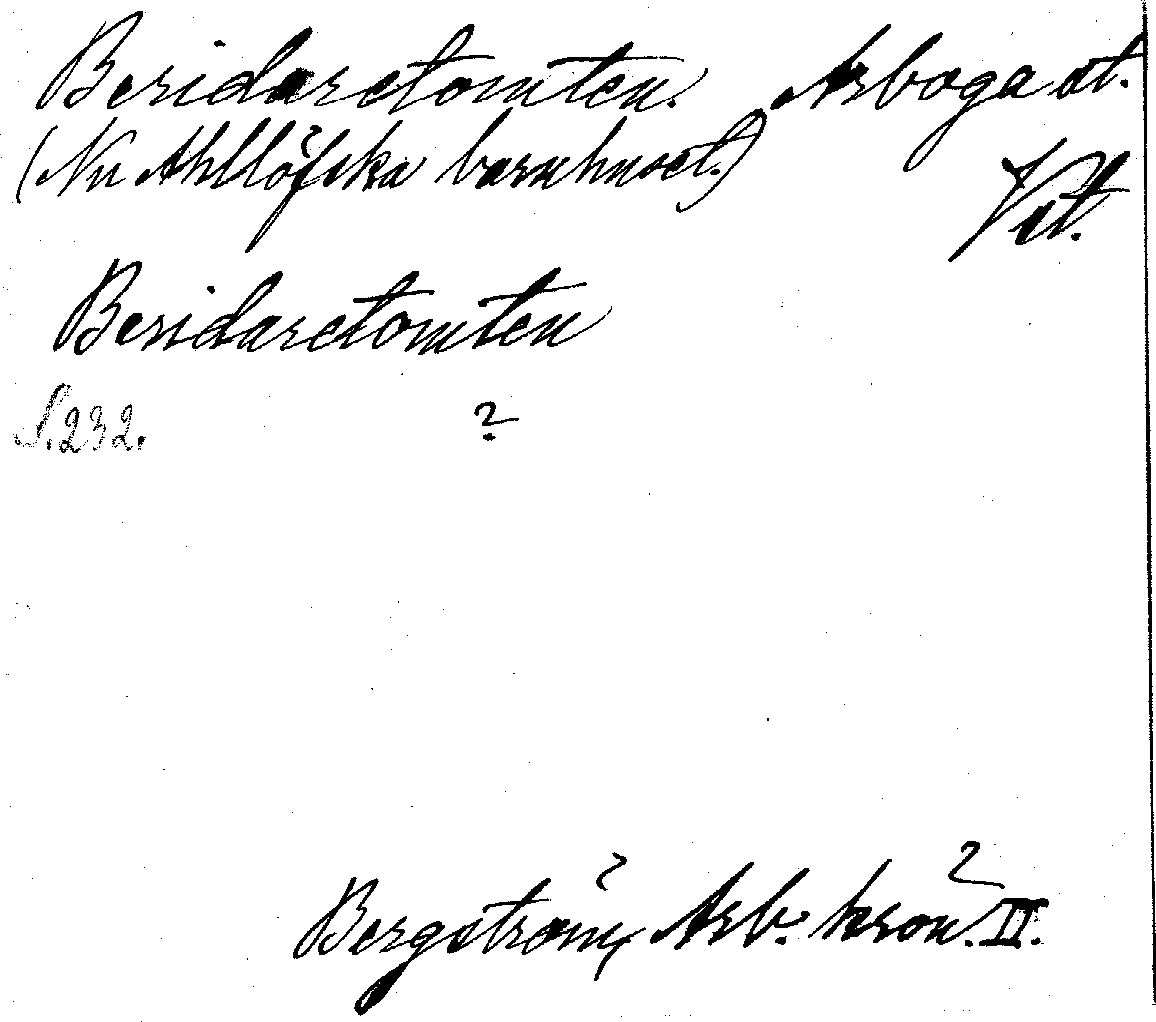 Beridaretomten. Arboga st.
(Nu Ahllöfska barnhuset.) Vstm.
Beridaretomten
S. 232. ?
Bergström, Arb. krön.² II.